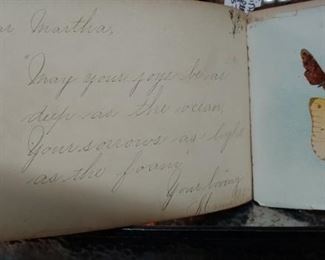 ar Martha,
"May your joys be as
deep as the ocean,
Your sorrows as light
as the foam,"
Your loving